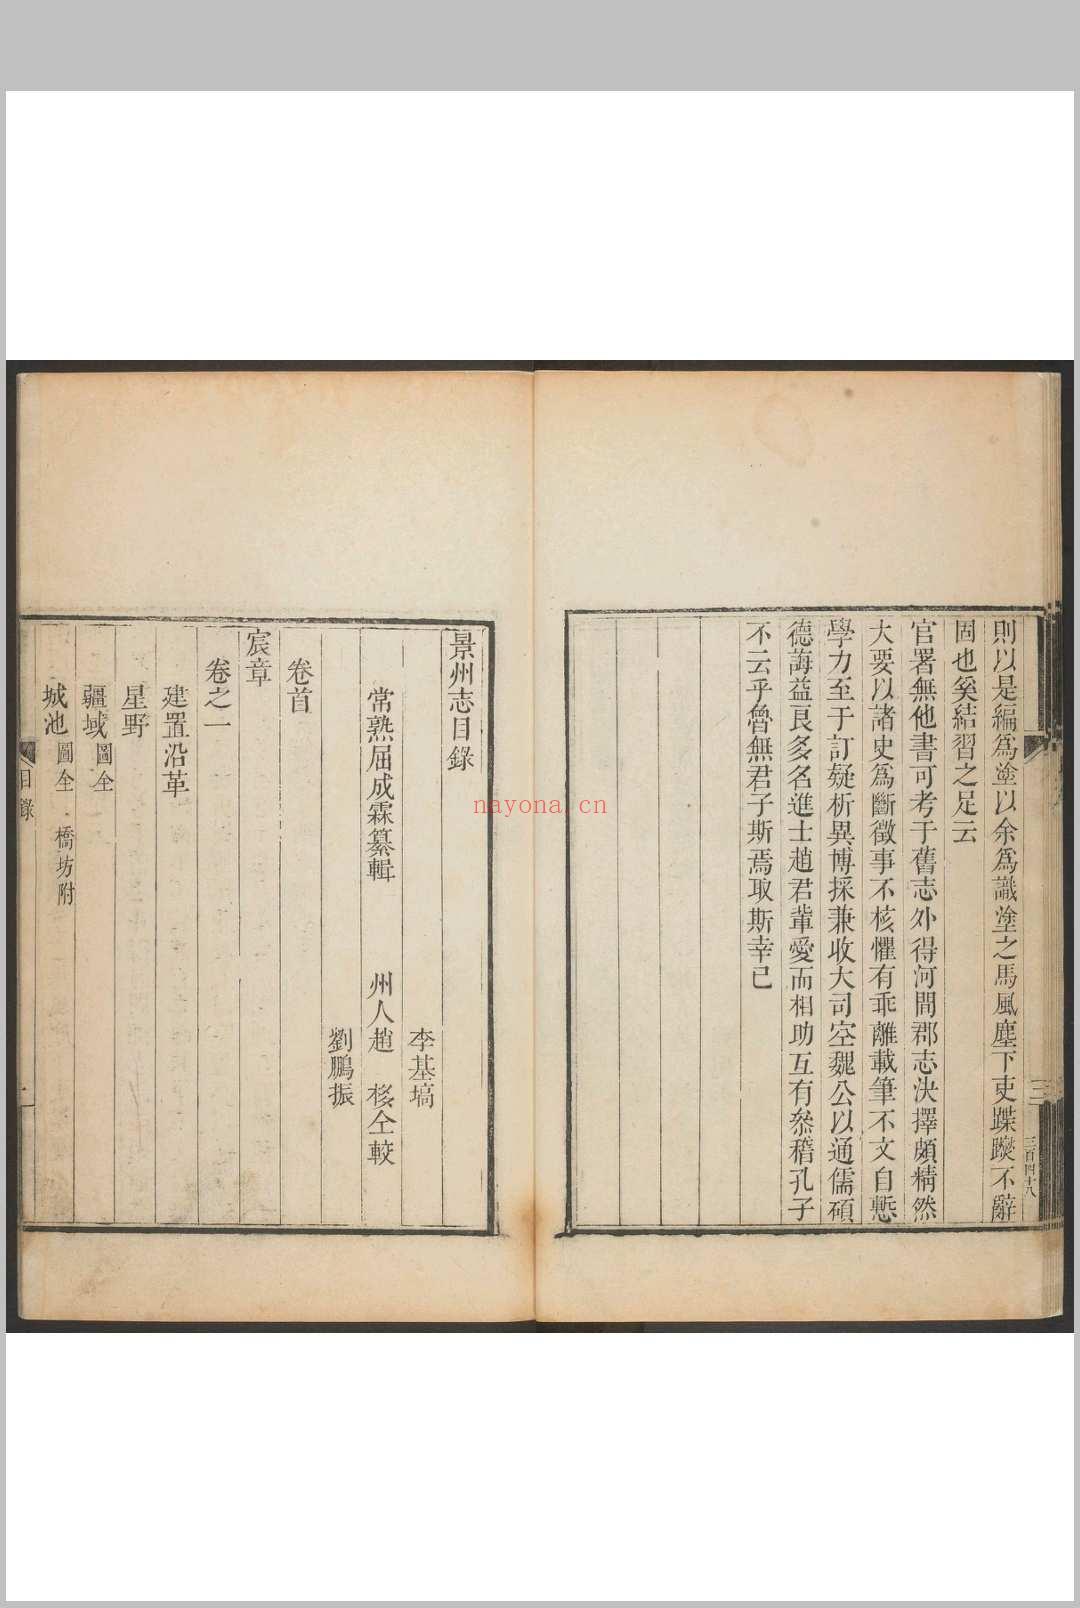 則以是編為塗以余為識塗之馬風塵下吏蹀躞不辭
固也奚結習之足云
官署無他書可考于舊志外得河間郡志決擇頗精然
大要以諸史為斷徵事不核懼有乖離載筆不文自慙
學力至于訂疑析異博採兼收大司空魏公以通儒碩
德誨益良多名進士趙君輩愛而相助互有叅稽孔子
不云乎魯無君子斯焉取斯幸已
三百四十八
景州志目錄
李基塙
常熟屈成霖纂輯 州人趙 㭘仝較
劉鵬振
卷首
宸章
卷之一
建置沿革
星野
疆域 圖全
城池 圖全 橋坊附
目錄
nayona.cn